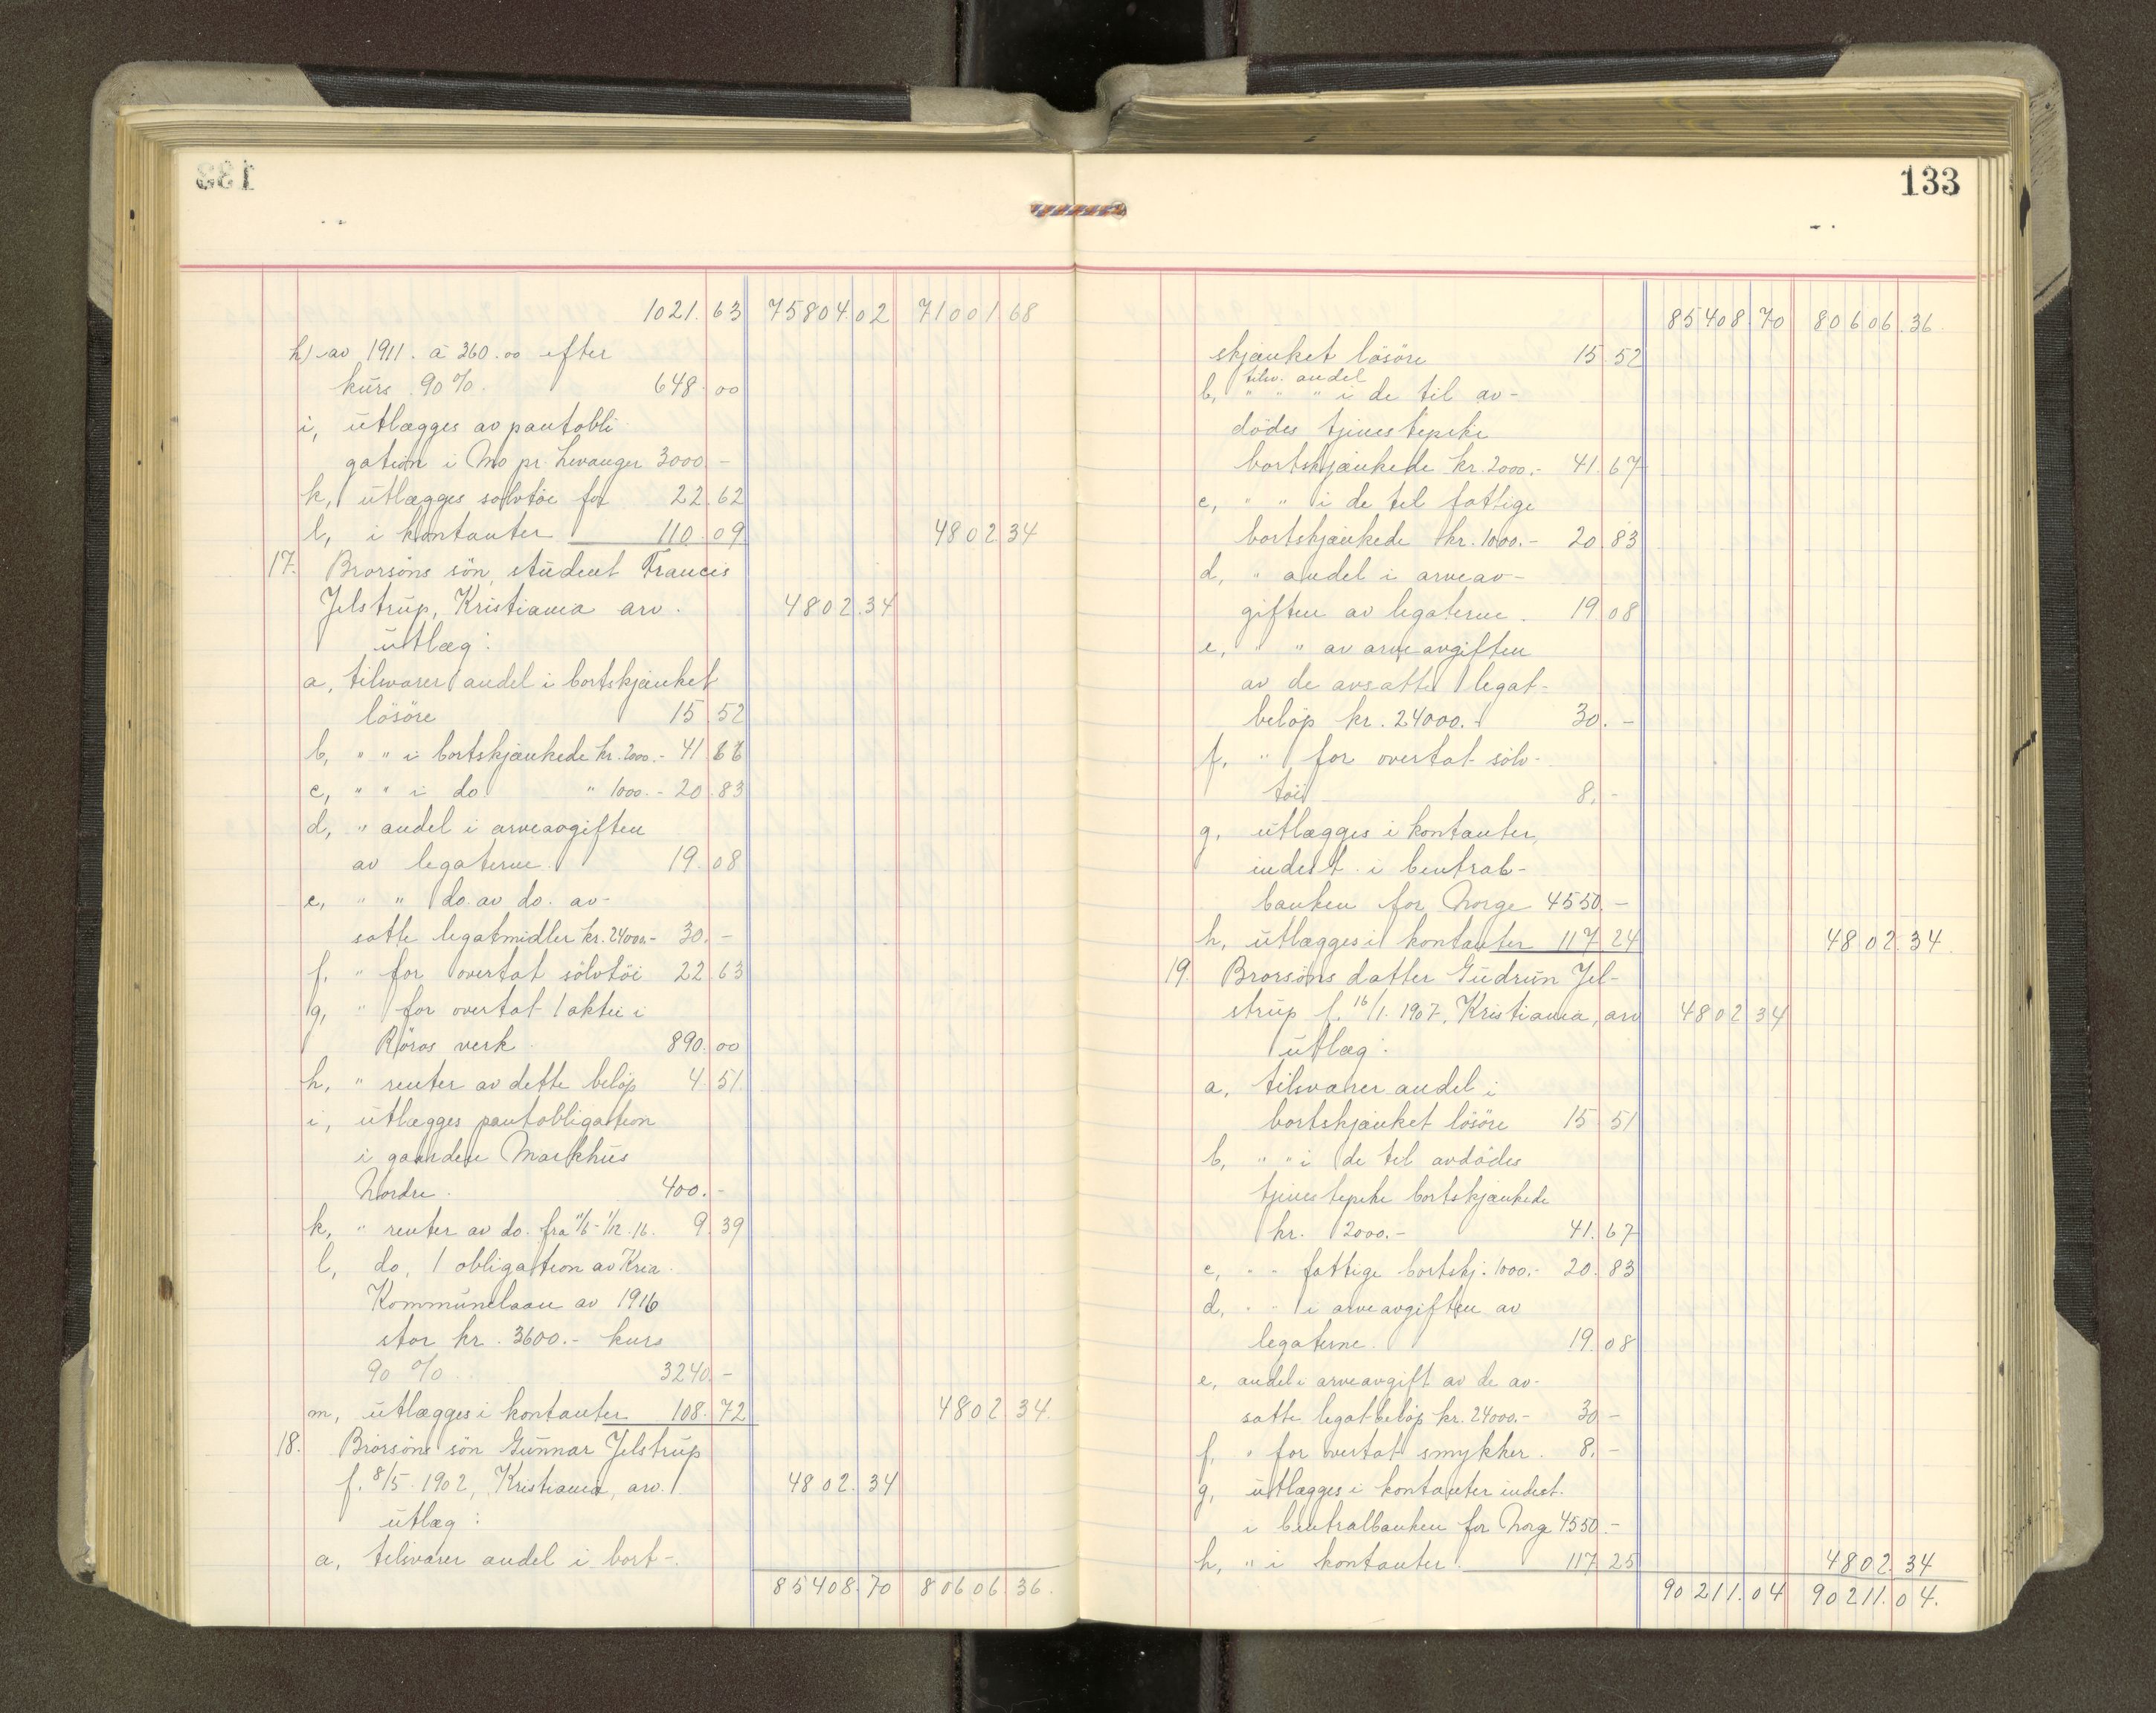 133
1021.63 75804.02 71001.68
h) av 1911. à 360.00 efter
kurs 90%. 648.00
i, utlægges av pantobli
gation i Mo pr. Levanger 3000.-
k, utlægges sølvtöi for 22.62
l, i kontanter 110.09 4802.34
17. Brorsöns sön, student Francis
Jelstrup, Kristiania arv. 4802.34
utlæg:
a, tilsvarer andel i bortskjænket
lösöre 15.52
b, " " i bortskjænkede kr. 2000.- 41.66
c, " " i do. " 1000.- 20.83
d, " andel i arveavgiften
av legaterne. 19.08
e, " " do. av do. av-
satte legatmidler kr. 24000.- 30.-
f, " for overtat sölvtöi 22.63
g, " for overtat 1 aktie i
Röros verk. 890.00
h, " renter av dette belöp 4.51
i, utlægges pantobligation
i gaarden Markhus
Nordre. 400.-
k, " renter av do. fra 11/6-1/12.16. 9.39
l, do, 1 obligation av Kria.
Kommunelaan av 1916
stor kr. 3600.- kurs
90 % 3240.-
m, utlægges i kontanter 108.72 4802.34.
18. Brorsöns sön Gunnar Jelstrup
f. 8/5.1902, Kristiania, arv. 4802.34
utlæg:
a, tilsvarer andel i bort-.
85408.70 80606.36.
133
85408.70 80606.36.
skjænket lösöre 15.52
tilsv. andel
b, " " " i de til av-
dödes tjenestepike
bortskjænkede kr. 2000.- 41.67
c, " " i de til fattige
bortskjænkede kr. 1000.- 20.83
d, " andel i arveav-
giften av legaterne. 19.08
e, " " av arveavgiften
av de avsatte legat-
belöp kr. 24000.- 30.-
f, " for overtat sölv-
töi 8.-
g, utlægges i kontanter,
indest. i Central-
banken for Norge 4550.-
h, utlægges i kontanter 117.24 4802.34.
19. Brorsöns datter Gudrun Jel-
strup f. 16/1.1907, Kristiania, arv 4802.34
utlæg:
a, tilsvarer andel i
bortskjænket lösöre 15.51
b, " " i de til avdödes
tjenestepike bortskjænkede
kr. 2000.- 41.67
c, " " fattige bortskj. 1000.- 20.83
d, " " i arveavgiften av
legaterne. 19.08
e, andel i arveavgift av de av-
satte legatbelöp kr. 24000.- 30.-
f, " for overtat smykker. 8.-
g, utlægges i kontanter indest.
i Centralbanken for Norg 4550.-
h, " i kontanter 117.25 4802.34
90211.04 90211.04.